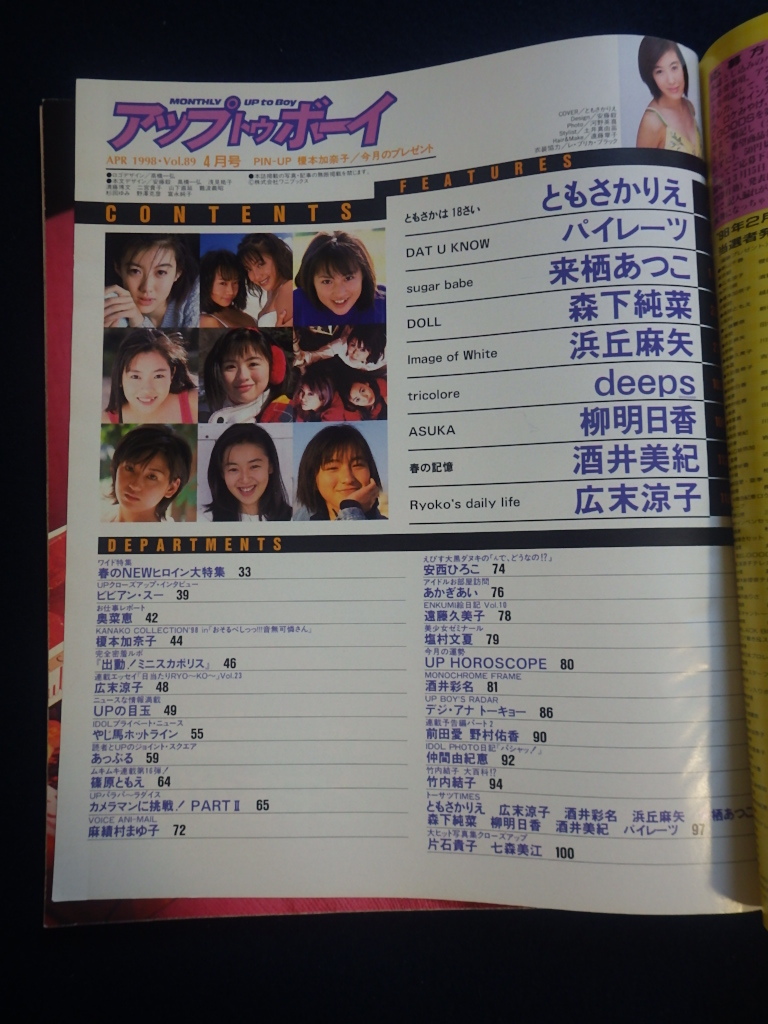 MONTHLY UP to Boy
アップトゥボーイ
APR 1998・Vol.89 4月号 PIN-UP 榎本加奈子／今月のプレゼント
CONTENTS
FEATURES
ともさかは 18さい ともさかりえ
DAT U KNOW パイレーツ
sugar babe 来栖あつこ
DOLL 森下純菜
Image of White 浜丘麻矢
tricolore deeps
ASUKA 柳明日香
春の記憶 酒井美紀
Ryoko's daily life 広末涼子
DEPARTMENTS
ワイド特集
春のNEWヒロイン大特集 33
UPクローズアップ・インタビュー
ビビアン・スー 39
お仕事レポート
奥菜恵 42
KANAKO COLLECTION'98 in「おそるべしっっ!!!音無可憐さん」
榎本加奈子 44
完全密着ルポ
「出動！ミニスカポリス」 46
連載エッセイ「日当たりRYO〜KO〜」Vol.23
広末涼子 48
ニュースな情報満載
UPの目玉 49
IDOLプライベート・ニュース
やじ馬ホットライン 55
読者とUPのジョイント・スクエア
あっぷる 59
篠原ともえ 64
UPパラパラダイス
カメラマンに挑戦！ PART II 65
VOICE ANI-MAIL
麻績村まゆ子 72
えびす大黒ダヌキの「んで、どうなの!?」
安西ひろこ 74
アイドルお部屋訪問
あかぎあい 76
ENKUMI絵日記 Vol.10
遠藤久美子 78
美少女ゼミナール
塩村文夏 79
今月の運勢
UP HOROSCOPE 80
MONOCHROME FRAME
酒井彩名 81
UP BOY'S RADAR
デジ・アナ トーキョー 86
連載予告編パート2
前田愛 野村佑香 90
IDOL PHOTO日記「パシャッ！」
仲間由紀恵 92
竹内結子 大百科!?
竹内結子 94
トーサツTIMES
ともさかりえ 広末涼子 酒井彩名 浜丘麻矢 栖あつこ
森下純菜 柳明日香 酒井美紀 パイレーツ 97
大ヒット写真集クローズアップ
片石貴子 七森美江 100